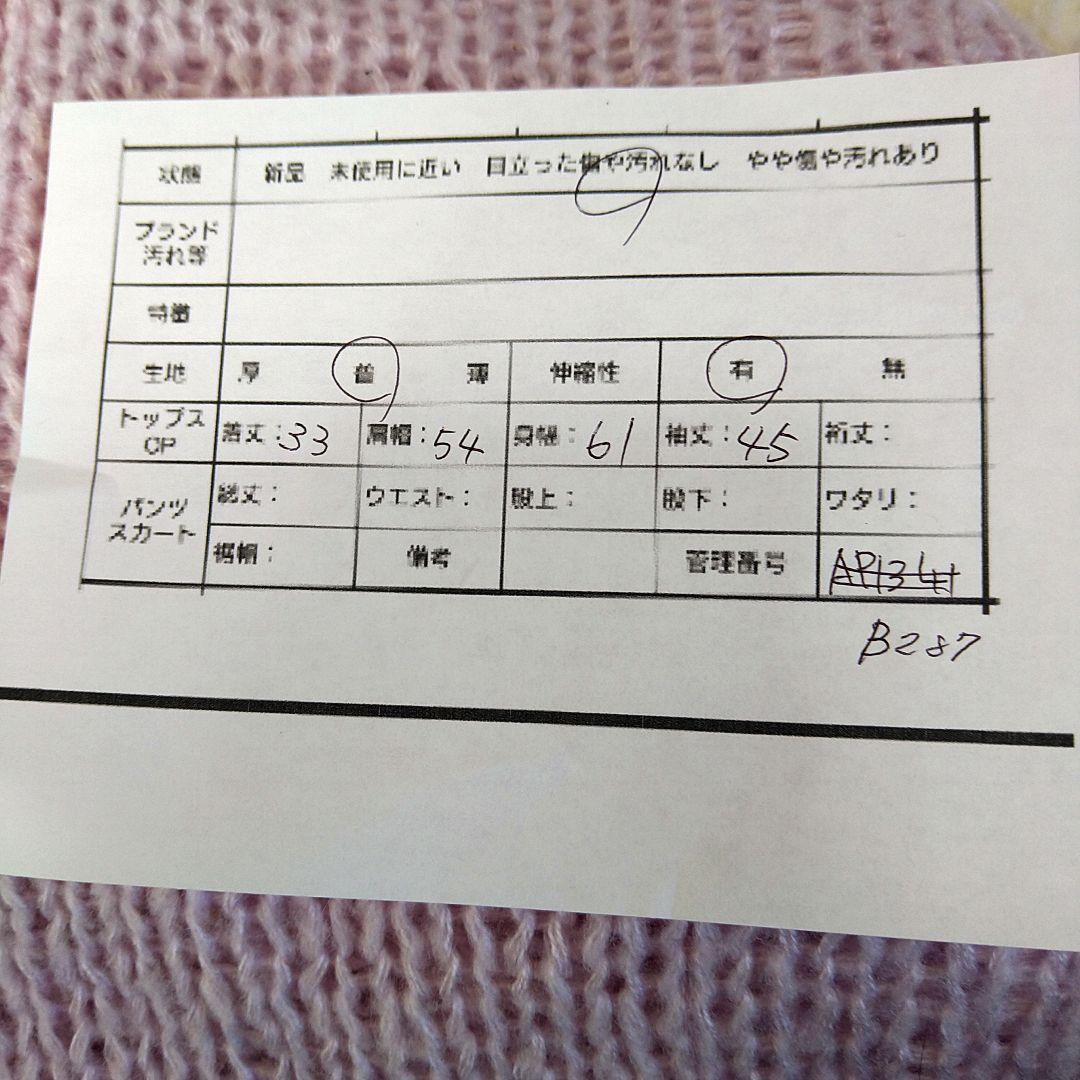 状態 新品 未使用に近い 目立った傷や汚れなし やや傷や汚れあり
ブランド
汚れ等
特徴
生地 厚 普 薄 伸縮性 有 無
トップス
OP
着丈：33 肩幅：54 身幅：61 袖丈：45 裄丈：
パンツ
スカート
総丈： ウエスト： 股上： 股下： ワタリ：
裾幅： 備考 管理番号
B287